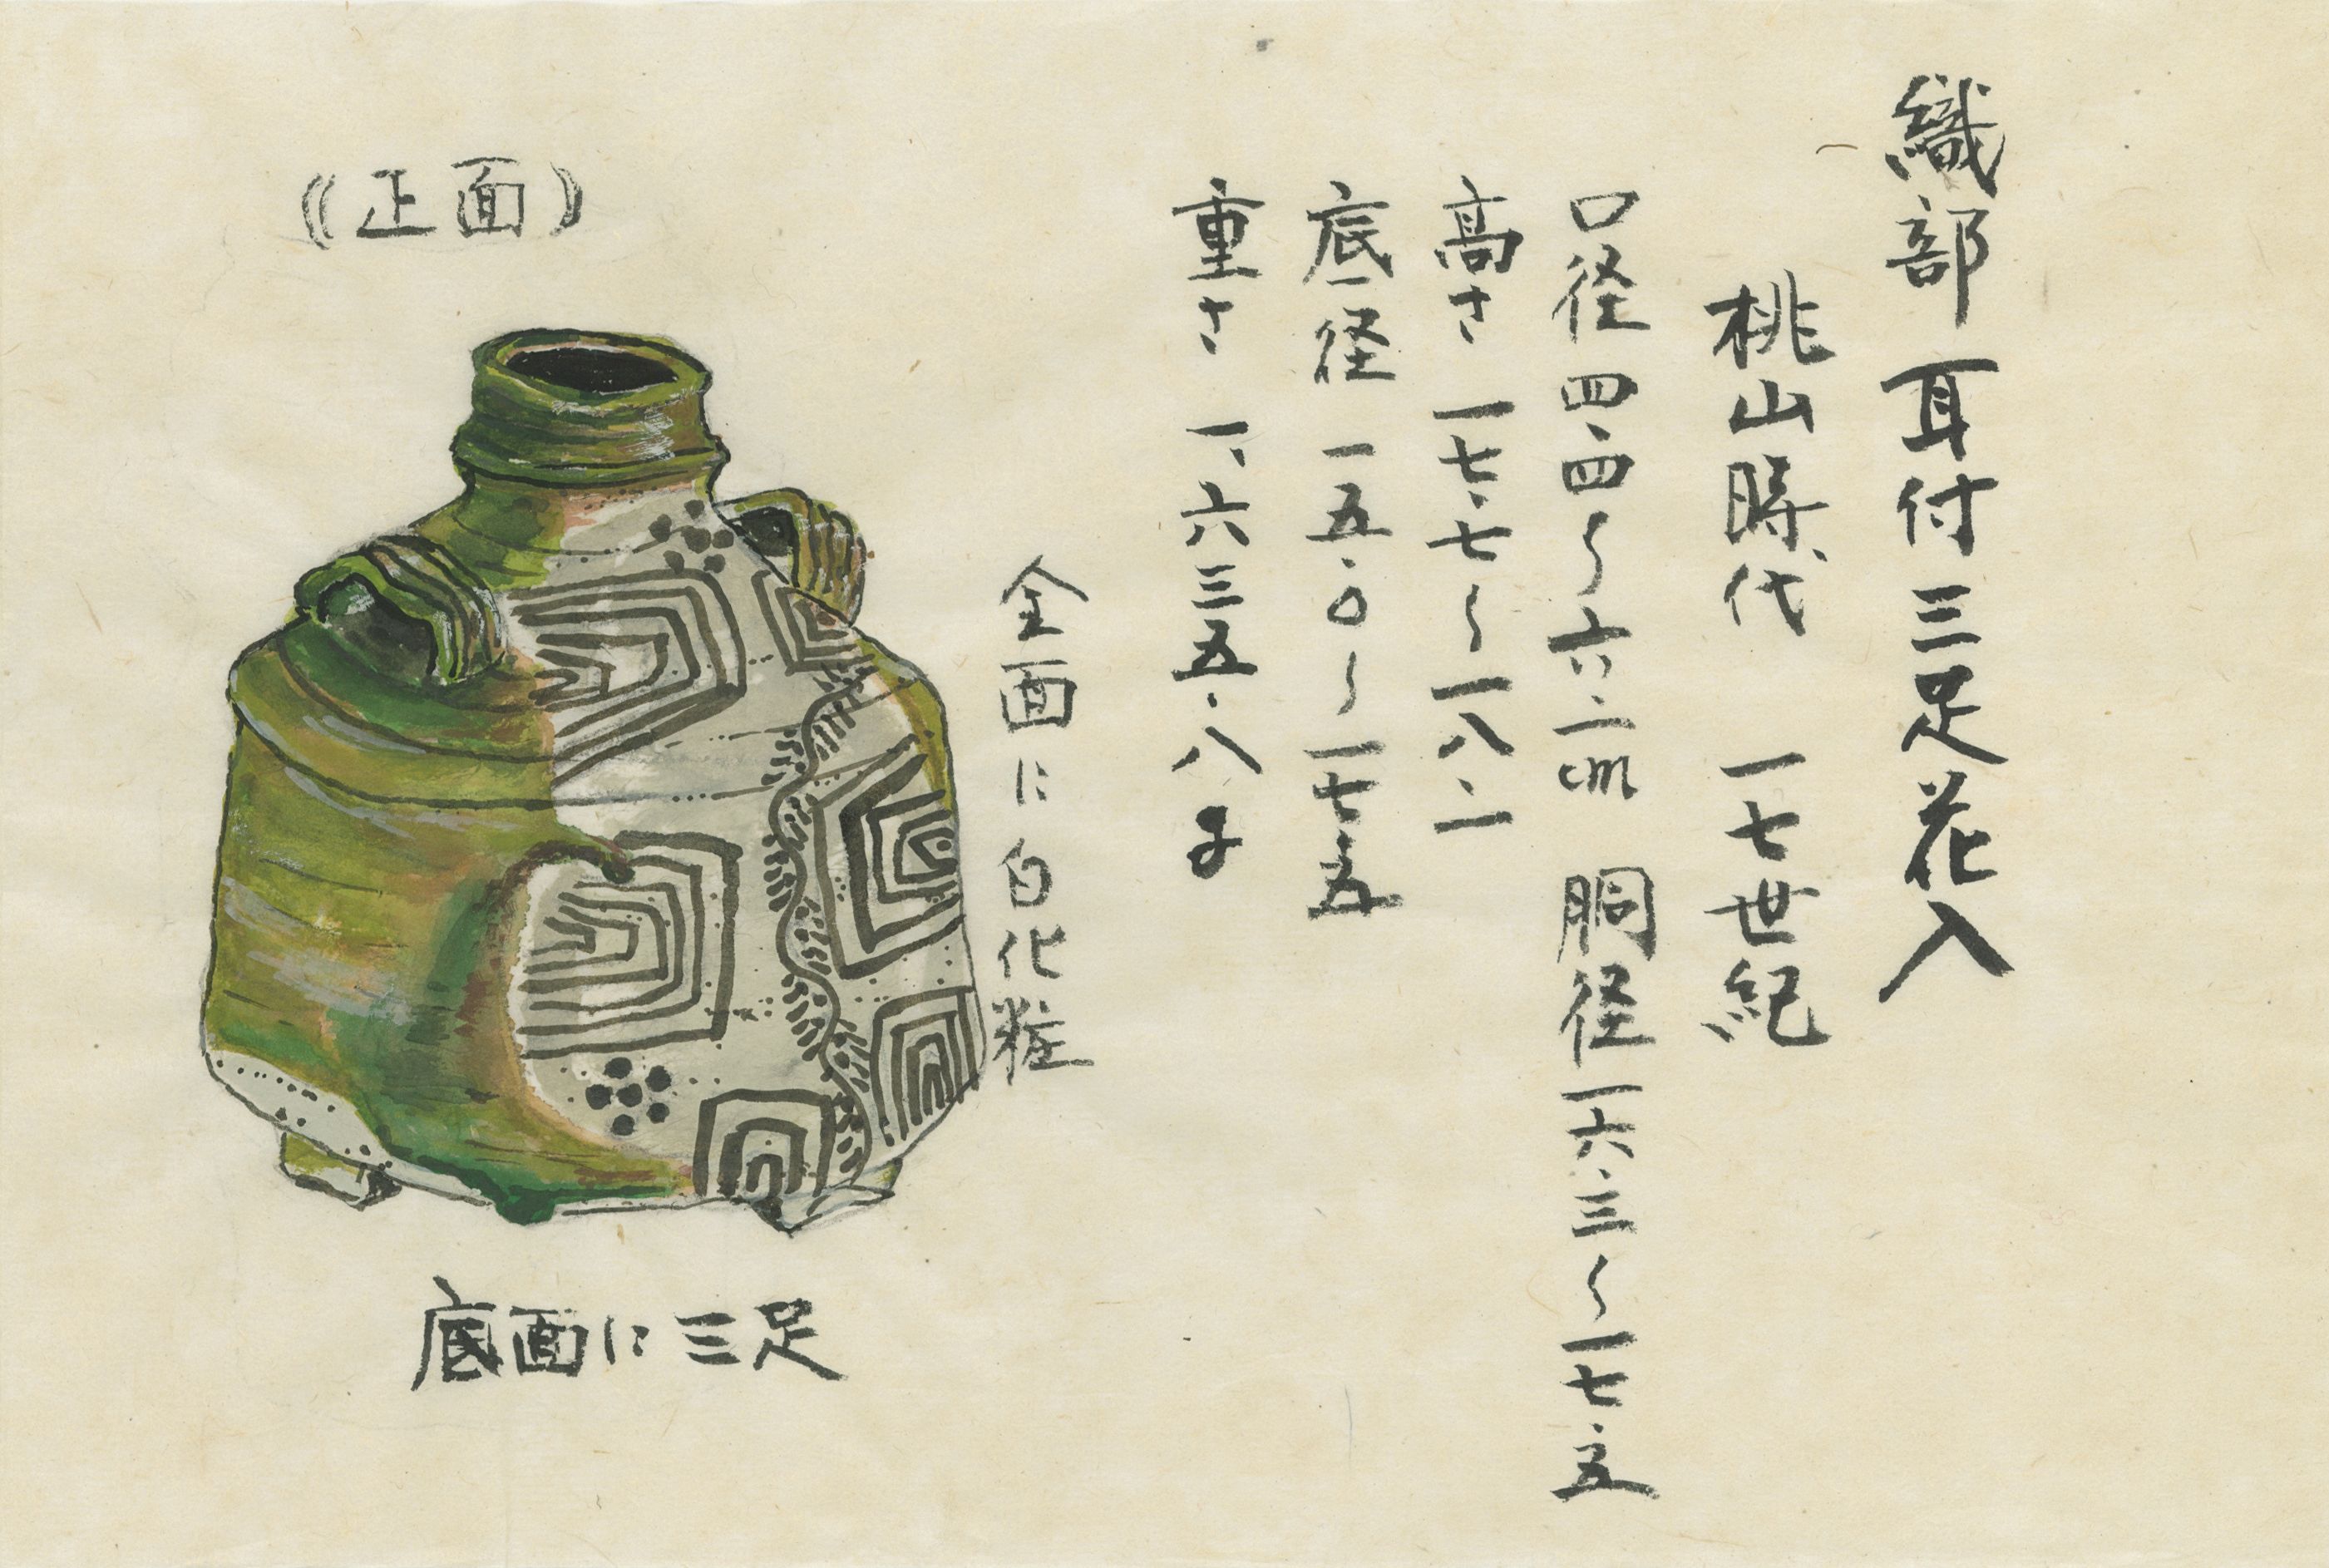 織部 耳付三足花入
桃山時代 一七世紀
口径 四.四〜六.二cm 胴径一六.三〜一七.五
高さ 一七.七〜一八.二
底径 一五.〇〜一七.五
重さ 一、六三五.八g
《正面》
全面に白化粧
底面に三足